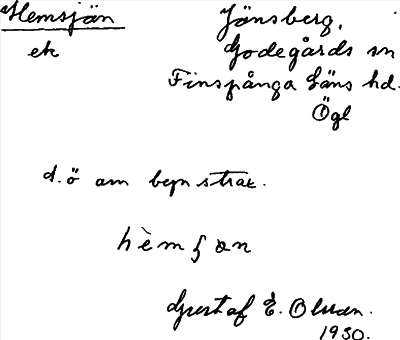 Hemsjön Jönsberg,
ek Godegårds sn
Finspånga läns hd.
Ögl
d. ö om bgn strax.
Gustaf E. Olsson.
1930.